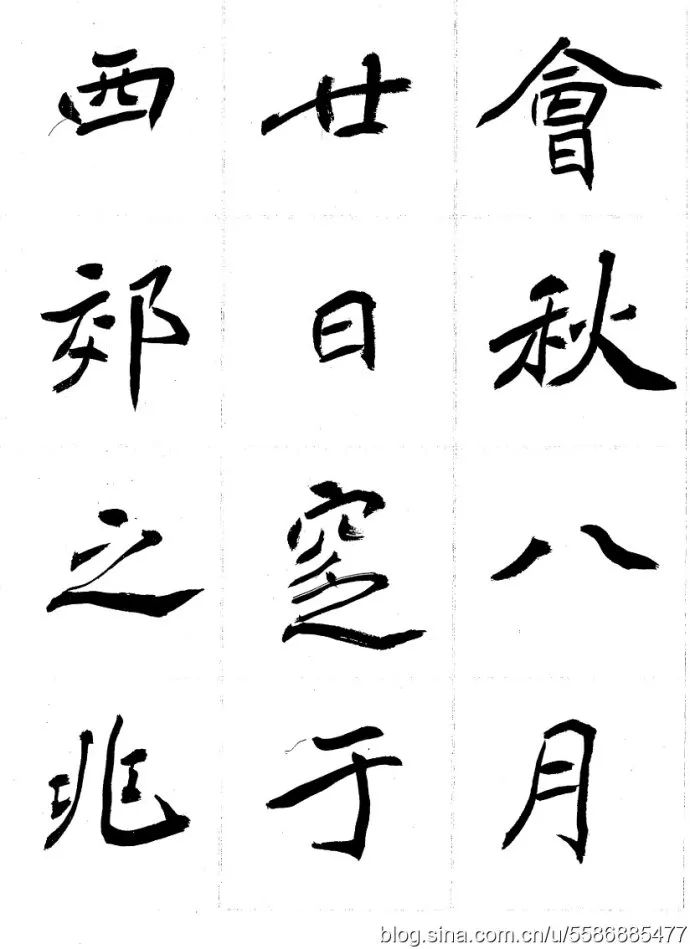 會秋八月
廿日窆于
西郊之兆
blog.sina.com.cn/u/5586885477